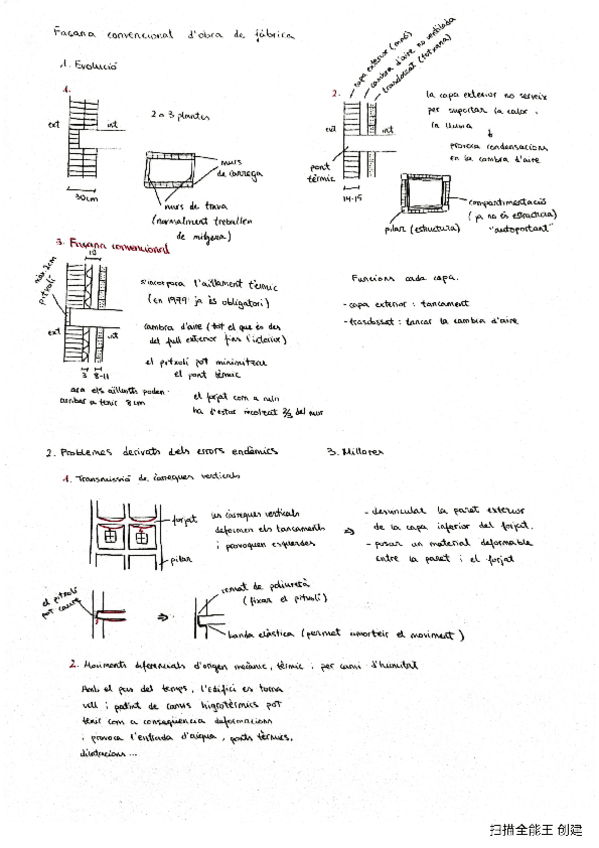 Façana convencional d'obra de fàbrica
1. Evolució
1.
ext
int
30 cm
2 o 3 plantes
murs
de càrrega
murs de trava
(normalment treballen
de mitgera)
2.
capa exterior (maó)
cambra d'aire no ventilada
trasdossat (totxana)
ext
int
pont
tèrmic
14-15
la capa exterior no serveix
per suportar la calor i
la lluvia
provoca condensacions
en la cambra d'aire
pilar (estructura)
compartimentació
(ja no és estructura)
"autoportant"
3. Façana convencional
10
pitxolí
ext
int
3
8-11
s'incorpora l'aïllament tèrmic
(en 1979 ja és obligatori)
cambra d'aire (tot el que és des
del full exterior fins l'interior)
el pitxolí pot minimitzar
el pont tèrmic
ara els aïllants poden
arribar a tenir 8 cm
el forjat com a mín
ha d'estar recolzat 2/3 del mur
Funcions cada capa.
- capa exterior : tancament
- trasdossat : tancar la cambra d'aire
2. Problemes derivats dels errors endèmics
3. Millores
1. Transmissió de càrregues verticals
forjat
pilar
les càrregues verticals
deformen els tancaments
i provoquen esquerdes
- desvincular la paret exterior
de la capa inferior del forjat.
- posar un material deformable
entre la paret i el forjat
el pitxolí
pot caure
remat de poliuretà
(fixar el pitxolí)
banda elàstica (permet amorteir el moviment)
2. Moviments diferencials d'origen mecànic, tèrmic i per canvi d'humitat
Amb el pas del temps, l'edifici es torna
vell i patint de canvis higrotèrmics pot
tenir com a conseqüència deformacions
i provoca l'entrada d'aigua, ponts tèrmics,
dilatacions ...
扫描全能王 创建